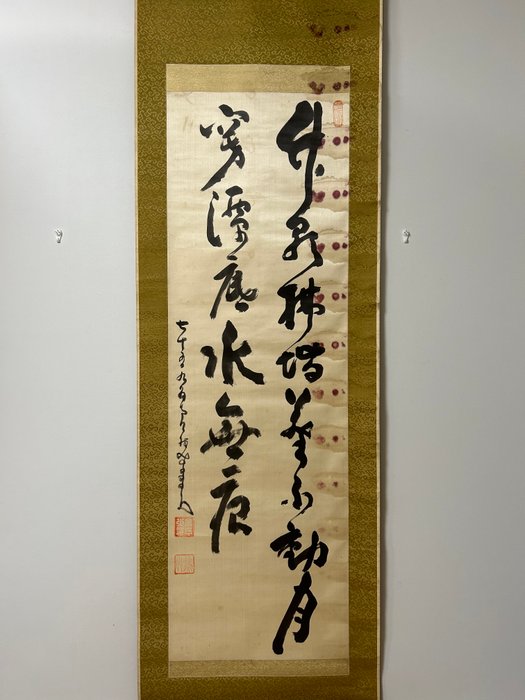 竹影拂堦塵不動月
穿潭底水無痕